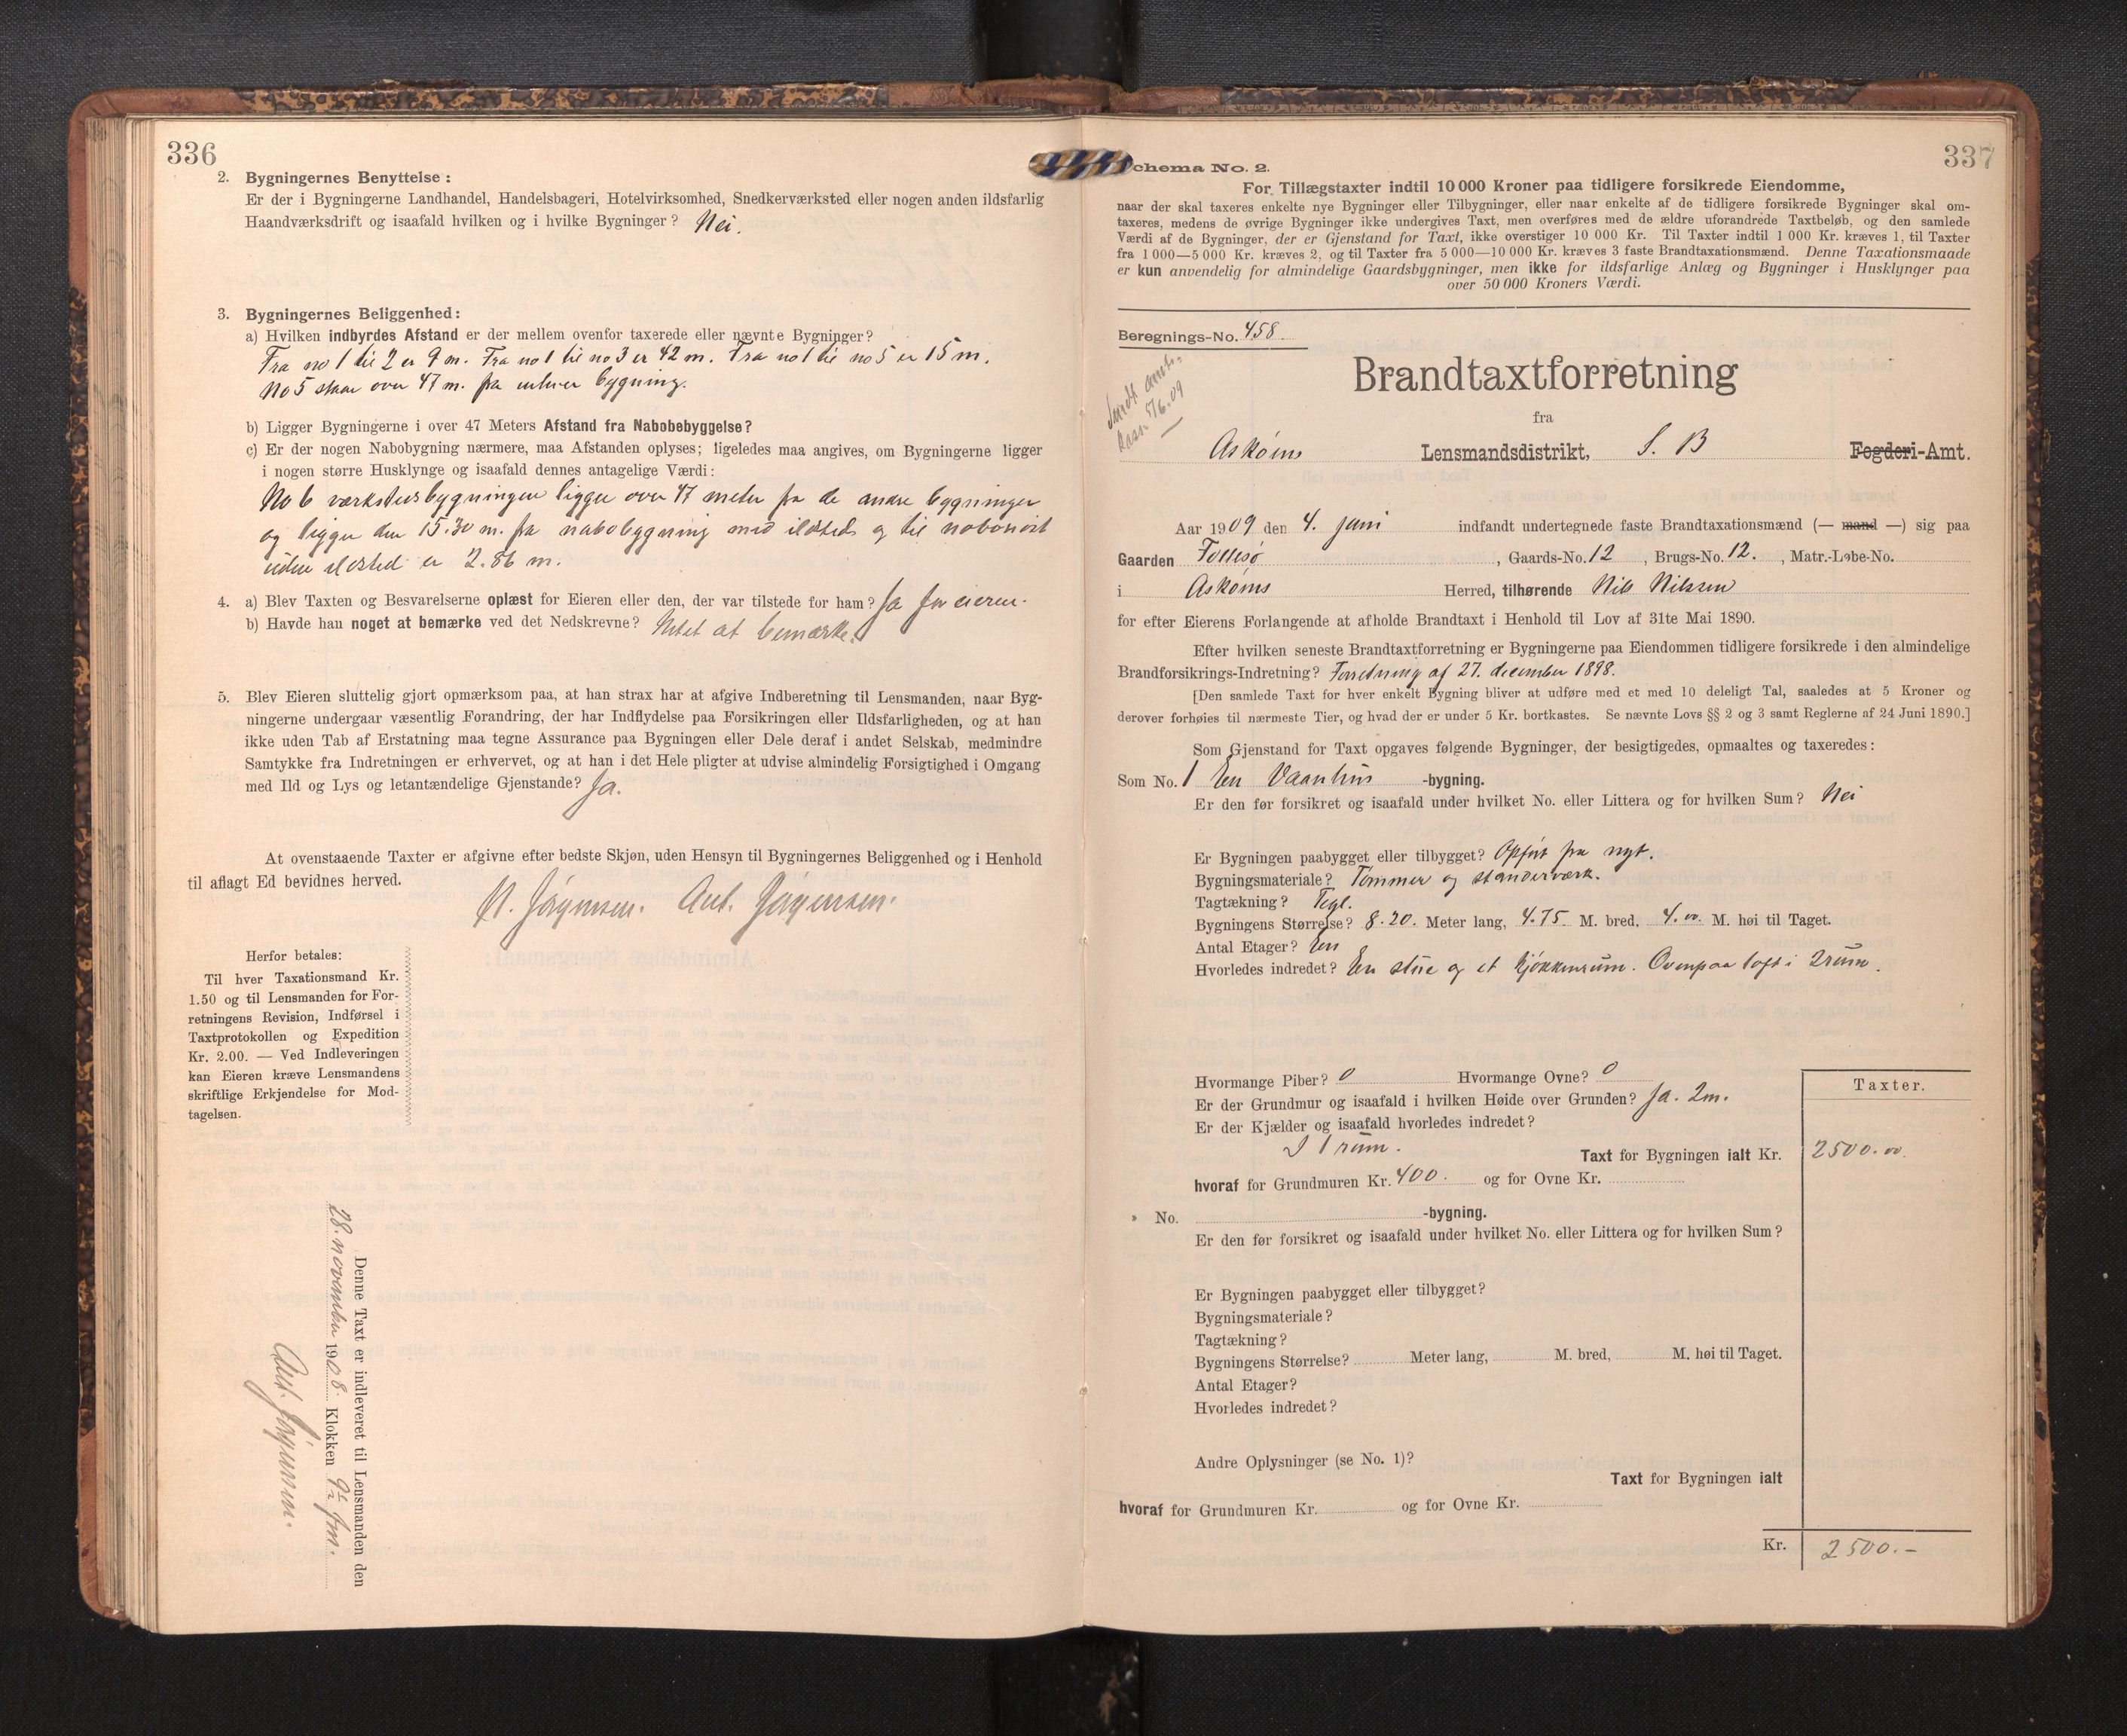 336
2. Bygningernes Benyttelse:
Er der i Bygningerne Landhandel, Handelsbageri, Hotelvirksomhed, Snedkerværksted eller nogen anden ildsfarlig
Haandværksdrift og isaafald hvilken og i hvilke Bygninger? Nei.
3. Bygningernes Beliggenhed:
a) Hvilken indbyrdes Afstand er der mellem ovenfor taxerede eller nævnte Bygninger?
Fra no 1 til 2 er 9 m. Fra no 1 til no 3 er 42 m. Fra no 1 til no 5 er 15 m.
No 5 staar over 47 m. fra enhver bygning.
b) Ligger Bygningerne i over 47 Meters Afstand fra Nabobebyggelse?
c) Er der nogen Nabobygning nærmere, maa Afstanden oplyses; ligeledes maa angives, om Bygningerne ligger
i nogen større Husklynge og isaafald dennes antagelige Værdi:
No 6 værkstedsbygningen ligger over 47 meter fra de andre bygninger
og ligger den 15.30 m. fra nabobyggning med ildsted og til nabonöst
uden ildsted er 2.86 m.
4. a) Blev Taxten og Besvarelserne oplæst for Eieren eller den, der var tilstede for ham? Ja for eieren.
b) Havde han noget at bemærke ved det Nedskrevne? Intet at bemærke.
5. Blev Eieren sluttelig gjort opmærksom paa, at han strax har at afgive Indberetning til Lensmanden, naar Byg-
ningerne undergaar væsentlig Forandring, der har Indflydelse paa Forsikringen eller Ildsfarligheden, og at han
ikke uden Tab af Erstatning maa tegne Assurance paa Bygningen eller Dele deraf i andet Selskab, medmindre
Samtykke fra Indretningen er erhvervet, og at han i det Hele pligter at udvise almindelig Forsigtighed i Omgang
med Ild og Lys og letantændelige Gjenstande? Ja.
At ovenstaaende Taxter er afgivne efter bedste Skjøn, uden Hensyn til Bygningernes Beliggenhed og i Henhold
til aflagt Ed bevidnes herved.
N. Jörgensen. Ant. Jörgensen.
Herfor betales:
Til hver Taxationsmand Kr.
1.50 og til Lensmanden for For-
retningens Revision, Indførsel i
Taxtprotokollen og Expedition
Kr. 2.00. — Ved Indleveringen
kan Eieren kræve Lensmandens
skriftlige Erkjendelse for Mod-
tagelsen.
Denne Taxt er indleveret til Lensmanden den
28. november 1908. Klokken 9½ fm.
Ant. Jörgensen.
337
Schema No. 2.
For Tillægstaxter indtil 10 000 Kroner paa tidligere forsikrede Eiendomme,
naar der skal taxeres enkelte nye Bygninger eller Tilbygninger, eller naar enkelte af de tidligere forsikrede Bygninger skal om-
taxeres, medens de øvrige Bygninger ikke undergives Taxt, men overføres med de ældre uforandrede Taxtbeløb, og den samlede
Værdi af de Bygninger, der er Gjenstand for Taxt, ikke overstiger 10 000 Kr. Til Taxter indtil 1 000 Kr. kræves 1, til Taxter
fra 1 000—5 000 Kr. kræves 2, og til Taxter fra 5 000—10 000 Kr. kræves 3 faste Brandtaxationsmænd. Denne Taxationsmaade
er kun anvendelig for almindelige Gaardsbygninger, men ikke for ildsfarlige Anlæg og Bygninger i Husklynger paa
over 50 000 Kroners Værdi.
Beregnings-No. 458
Sendt
5/6.09
Brandtaxtforretning
fra
Askøens Lensmandsdistrikt, S. B Fogderi-Amt.
Aar 1909 den 4. juni indfandt undertegnede faste Brandtaxationsmænd (— mand —) sig paa
Gaarden Follesø, Gaards-No. 12, Brugs-No. 12., Matr.-Løbe-No.
i Askøens Herred, tilhørende Nils Nilssen
for efter Eierens Forlangende at afholde Brandtaxt i Henhold til Lov af 31te Mai 1890.
Efter hvilken seneste Brandtaxtforretning er Bygningerne paa Eiendommen tidligere forsikrede i den almindelige
Brandforsikrings-Indretning? Forretning af 27. december 1898.
[Den samlede Taxt for hver enkelt Bygning bliver at udføre med et med 10 deleligt Tal, saaledes at 5 Kroner og
derover forhøies til nærmeste Tier, og hvad der er under 5 Kr. bortkastes. Se nævnte Lovs §§ 2 og 3 samt Reglerne af 24 Juni 1890.]
Som Gjenstand for Taxt opgaves følgende Bygninger, der besigtigedes, opmaaltes og taxeredes:
Som No. 1 En Vaanhus -bygning.
Er den før forsikret og isaafald under hvilket No. eller Littera og for hvilken Sum? Nei
Er Bygningen paabygget eller tilbygget? Opført fra nyt.
Bygningsmateriale? Tømmer og standerværk.
Tagtækning? Tegl.
Bygningens Størrelse? 8.20. Meter lang, 4.75 M. bred, 4.00 M. høi til Taget.
Antal Etager? En
Hvorledes indredet? En stue og et kjøkkenrum. Ovenpaa loft i 2 rum.
Hvormange Piber? 0 Hvormange Ovne? 0
Er der Grundmur og isaafald i hvilken Høide over Grunden? Ja. 2 m.
Er der Kjælder og isaafald hvorledes indredet?
I 1 rum.
Taxter.
Taxt for Bygningen ialt Kr. 2500.00.
hvoraf for Grundmuren Kr. 400. og for Ovne Kr.
» No. -bygning.
Er den før forsikret og isaafald under hvilket No. eller Littera og for hvilken Sum?
Er Bygningen paabygget eller tilbygget?
Bygningsmateriale?
Tagtækning?
Bygningens Størrelse? Meter lang, M. bred, M. høi til Taget.
Antal Etager?
Hvorledes indredet?
Andre Oplysninger (se No. 1)?
Taxt for Bygningen ialt
hvoraf for Grundmuren Kr. og for Ovne Kr.
Kr. 2500.-